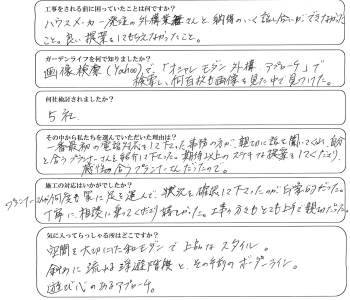 工事をされる前に困っていたことは何ですか?
ハウスメーカー発注の外構業者さんと納得のいく話し合いができなかった
こと。良い提案をしてもらえなかったこと。
ガーデンライフを何で知りましたか?
画像検索(Yahoo)で、「オシャレ モダン 外構 アプローチ」で
検索し、何百枚も画像を見た中で見つけた。
何社検討されましたか?
5社
その中から私たちを選んでいただいた理由は?
一番最初の電話対応をして下さった事務の方が、親切に話を聞いてくれ、自分
と合うプランナーさんを紹介して下さった。期待以上のステキな提案をしてくださり、
感性の合うプランナーさんだったので。
施工の対応はいかがでしたか?
プランナーさんが何度も家に足を運んで、状況を確認して下さったのが印象的だった。
丁寧に、相談に乗ってくださり嬉しかった。工事の方々もとても上手で親切だった。
気に入ってらっしゃる所はどこですか?
空間を大切にした和モダンで上品なスタイル。
斜めに流れる浮遊階段と、その手前のボーダーライン。
遊び心のあるアプローチ。